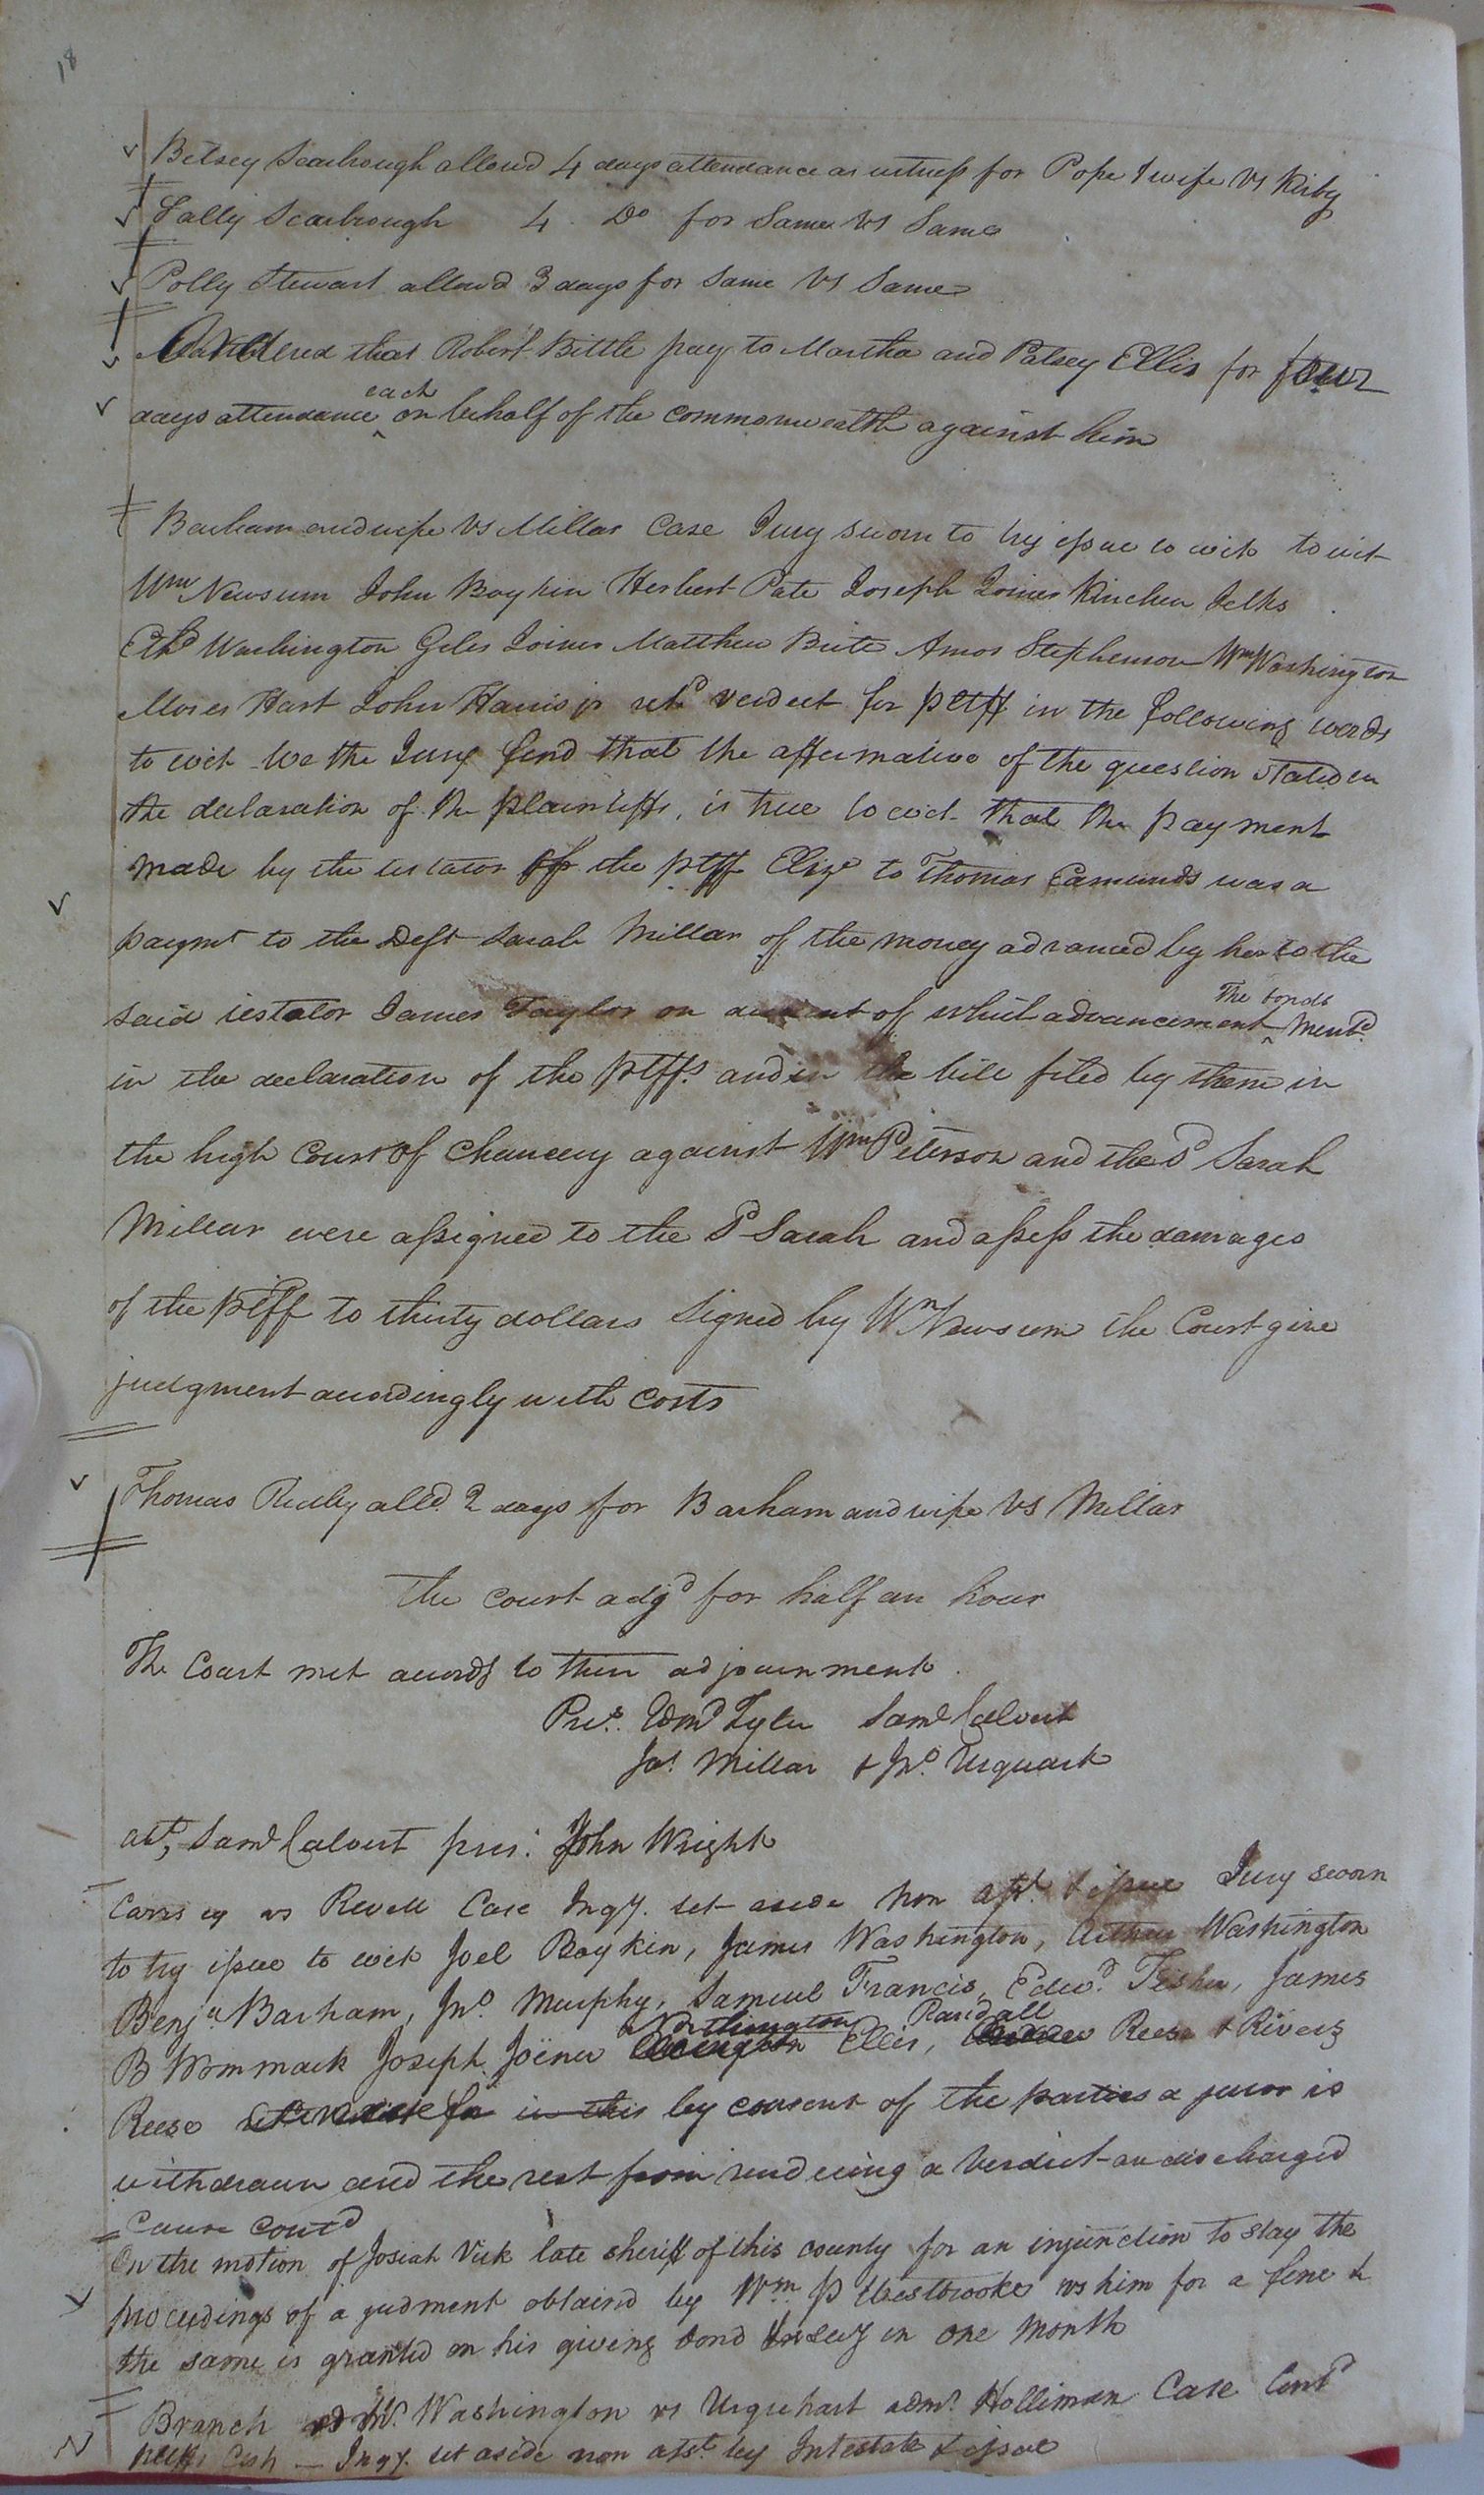 18
Betsey Scarbrough allowd 4 days attendance as witness for Pope & wife vs Kirby
Sally Scarbrough 4 Do for Same vs Same
Polly Stewart allowd 3 days for Same vs Same
Ordered that Robert Bittle pay to Martha and Patsey Ellis for four
days attendance each on behalf of the commonwealth against him
Barham and wife vs Millar Case Jury sworn to try issue to wit to wit
Wm Newsum John Boykin Herbert Pate Joseph Joiner Kinchen Jelks
Ethd Washington Giles Joiner Matthew Brite Amos Stephenson Wm Washington
Moses Hart John Harris jr retd verdect for pltff in the following words
to wit We the Jury find that the affirmative of the question Stated in
the declaration of the plaintiffs, is true to wit that the payment
made by the testator of the pltff Eliza to Thomas Edmunds was a
paymt to the Deft Sarah Millar of the money advanced by her to the
said testator James Taylor on account of which advancement The bonds mentd
in the declaration of the pltffs and in the bill filed by them in
the high Court of Chancery against Wm Peterson and the sd Sarah
Millar were assigned to the sd Sarah and assess the damages
of the pltff to thirty dollars Signed by Wm Newsum the Court give
judgment accordingly with Costs
Thomas Ridley alld 2 days for Barham and wife vs Millar
the court adjd for half an hour
The Court met accordg to their adjournment
Pres. Edmd Tyler Saml Calvert
Jas. Millar & Jno. Urquart
abst, Saml Calvert pres. John Wright
Carrsey vs Revell Case Ingy. set aside non asst. & issue Jury sworn
to try issue to wit Joel Boykin, James Washington, Arthur Washington
Benja Barham, Jno. Murphy, Samuel Francis, Edwd. Fisher, James
B Wommack Joseph Joiner Northington Ellis, Randall Reese & Rivers
Reese in this by consent of the parties a juror is
withdrawn and the rest from rendering a Verdict are discharged
Cause Contd
On the motion of Josiah Vick late sheriff of this county for an injunction to stay the
proceedings of a judment obtaind by Wm. P Westbrooke vs him for a fine &
the same is granted on his giving bond & secy in one Month
Branch Washington vs Urquhart admr. Holliman Case Contd
Ingy. set aside non asst. by Intestate & issue